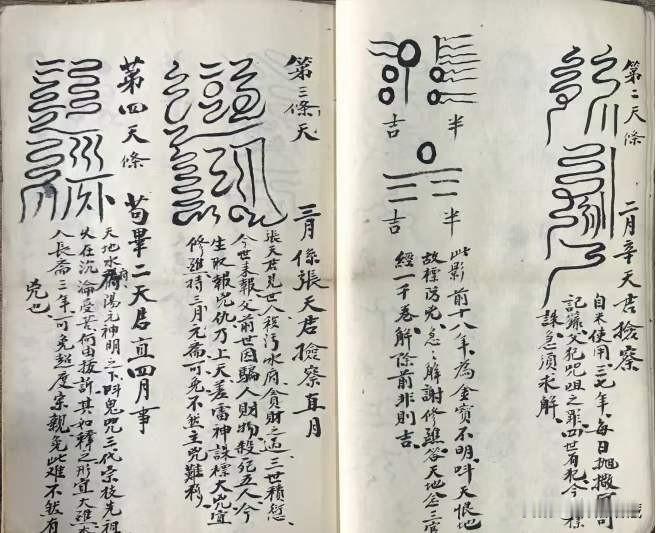 第二天條
二月辛天君檢察
自米使用三七年每日拋撒
記錄父犯咒咀之罪四世有犯今
誅急須求解
半吉
半吉
此影前十八年為金寶不明叫天恨地
故標落咒急急解謝修雝答天地念三官
經一千卷解除前非則吉
第三條天
三月係張天君檢察直月
張天君見世人穢污水府貪財之心三世積愆
今世未報父前世因騙人財物殺死五人今
生取報咒仇乃上天差雷神誅標大凶宜
修雝持三月元齋可免不然主咒難移
第四天條
苟畢二天君直四月事
天地水府陽元神明之下叫鬼咒三代宗枝先祖
久在沉淪受苦何由拔訴其如釋之形宜大雝
人長齋三年可免超度宗親免此難不然有
咒也